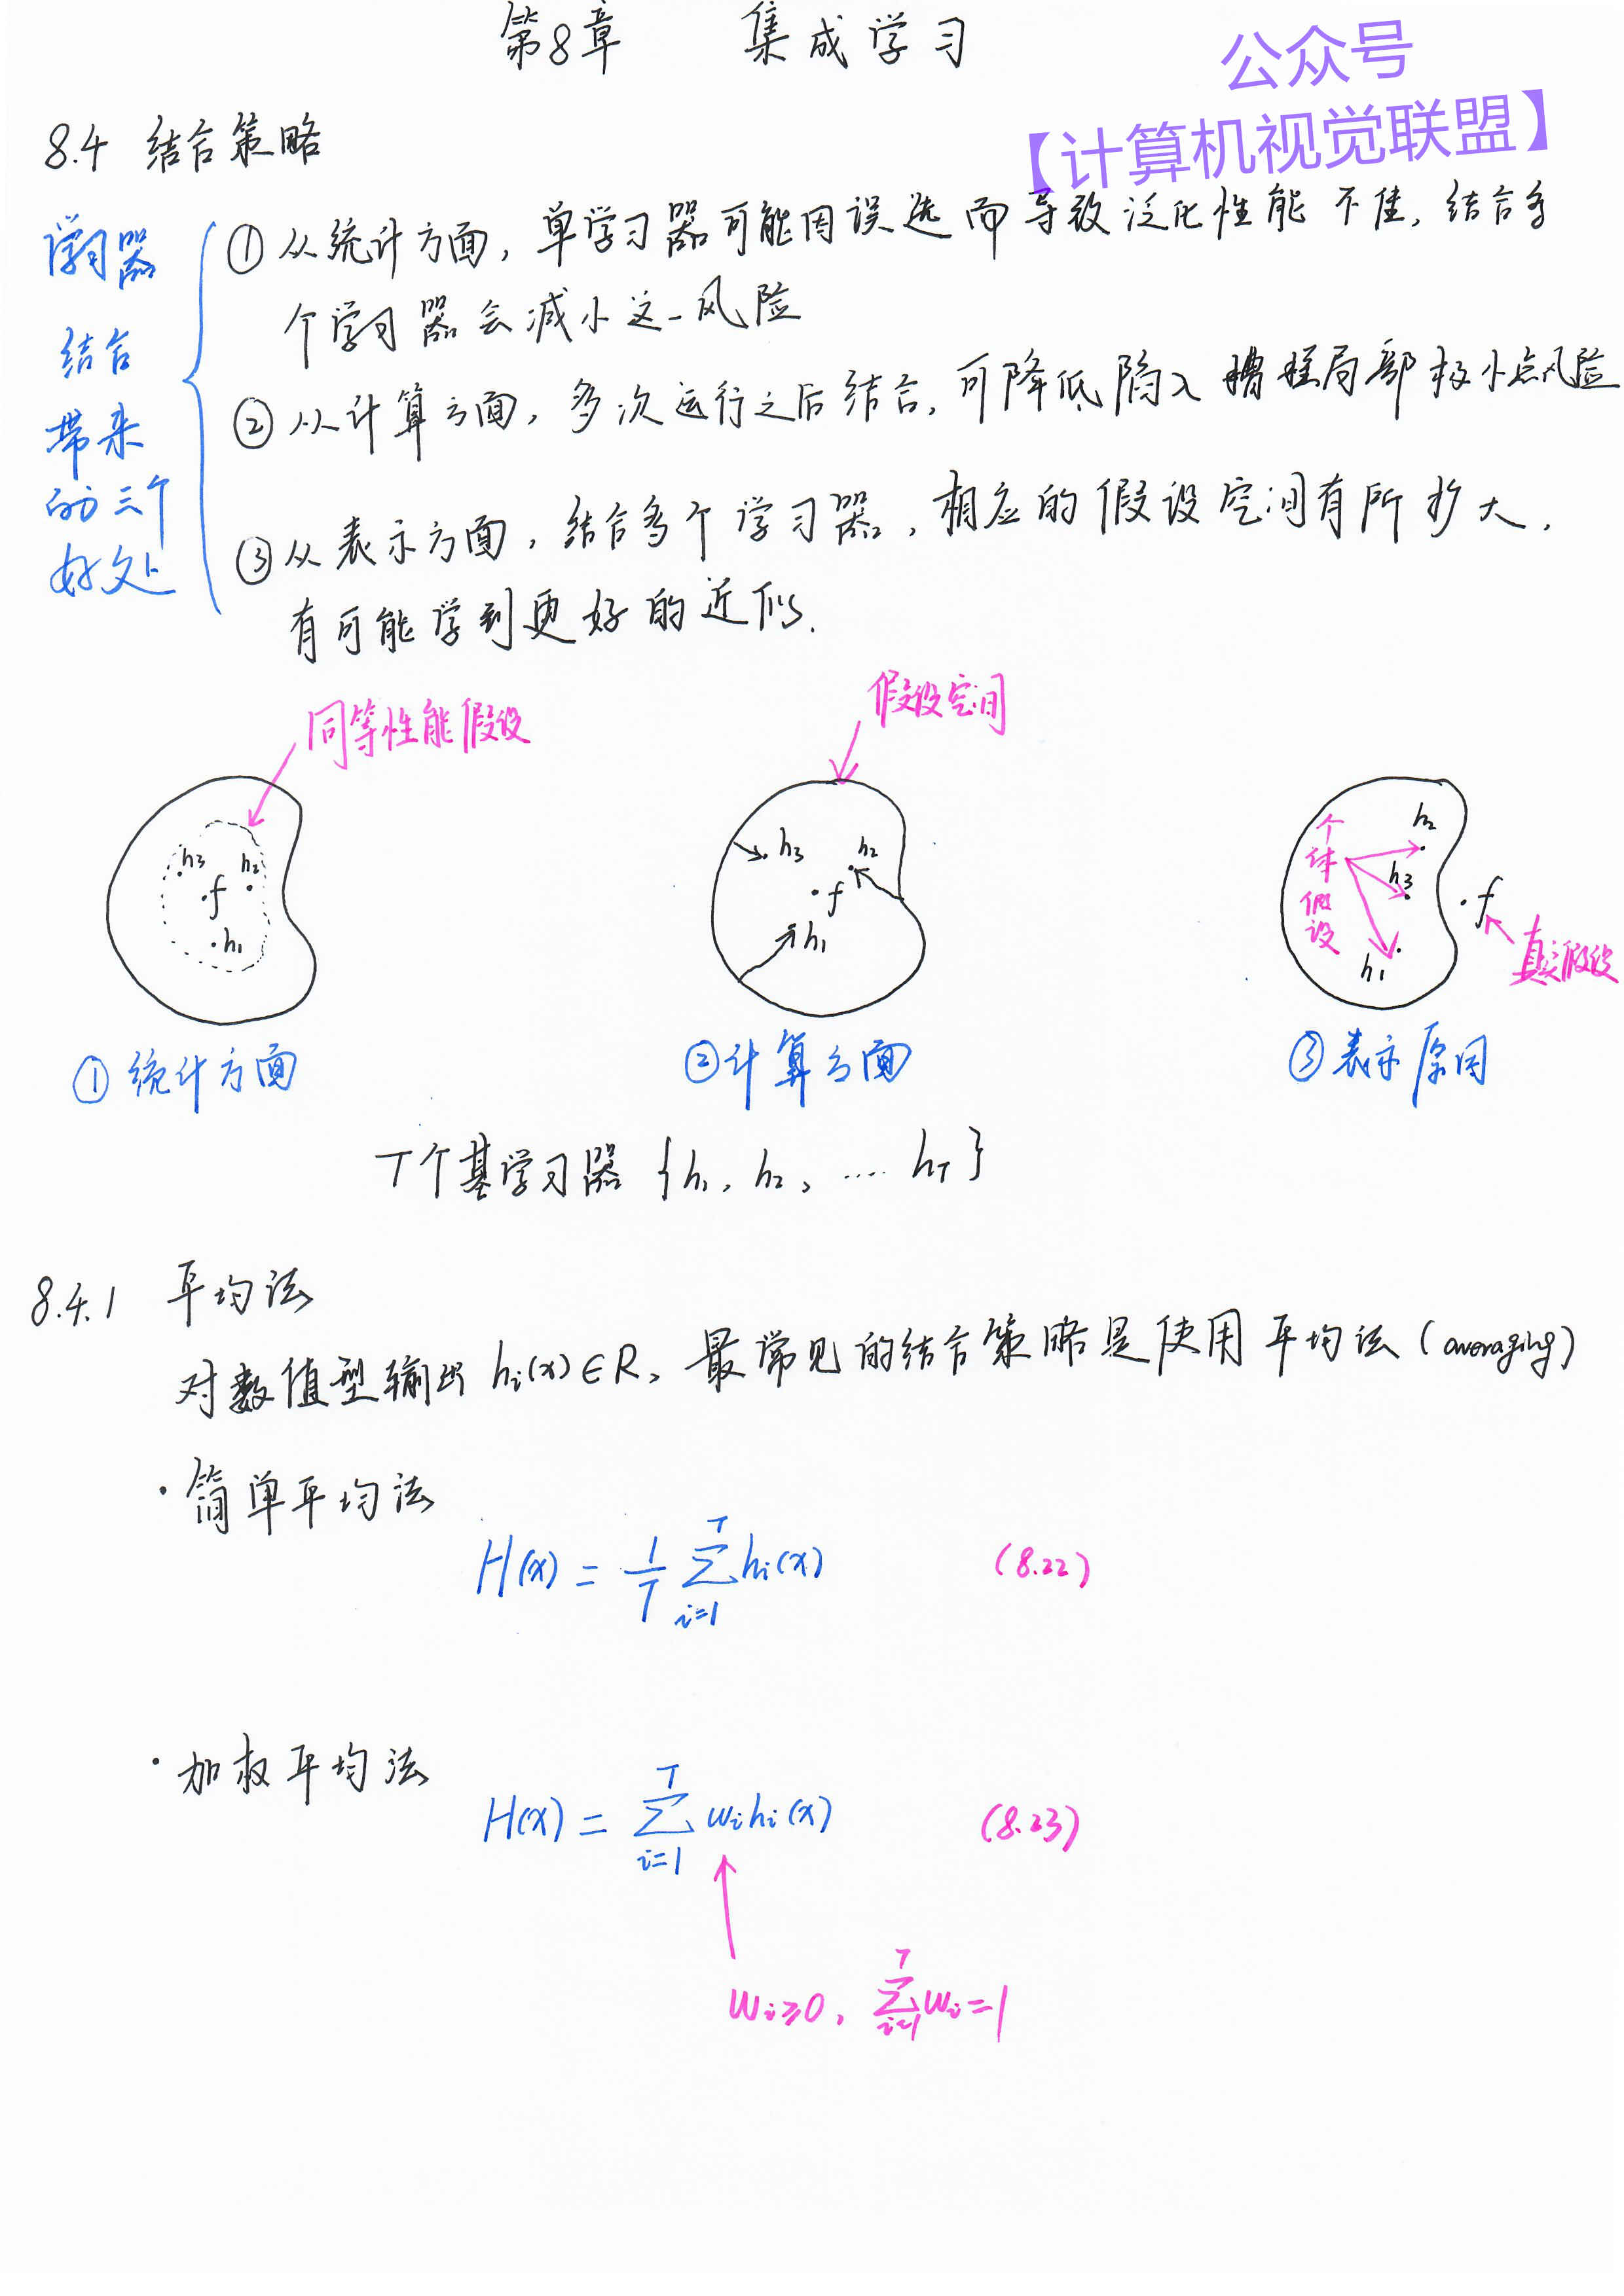 第8章 集成学习
公众号
【计算机视觉联盟】
8.4 结合策略
学习器
结合
带来
的三个
好处
① 从统计方面, 单学习器可能因误选而导致泛化性能不佳, 结合多
个学习器会减小这一风险
② 从计算方面, 多次运行之后结合, 可降低陷入糟糕局部极小点风险
③ 从表示方面, 结合多个学习器, 相应的假设空间有所扩大,
有可能学到更好的近似.
同等性能假设
假设空间
h3 h2
f
h1
h3 h2
f
h1
个体假设
h2
h3
h1
f
真实假设
① 统计方面
② 计算方面
③ 表示原因
T个基学习器 {h1, h2, .... hT}
8.4.1 平均法
对数值型输出 hi(x)∈R, 最常见的结合策略是使用平均法 (averaging)
· 简单平均法
H(x) = 1/T ∑_{i=1}^{T} hi(x) (8.22)
· 加权平均法
H(x) = ∑_{i=1}^{T} wihi(x) (8.23)
wi≥0, ∑_{i=1}^{T} wi=1